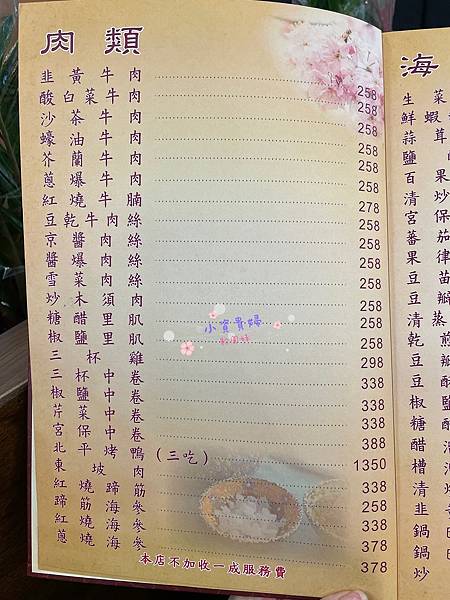 肉類
韭黃牛肉 258
酸白菜牛肉 258
沙茶牛肉 258
蠔油牛肉 258
芥蘭牛肉 258
蔥爆牛肉 258
紅燒牛腩 278
豆乾牛肉絲 258
京醬肉絲 258
醬爆肉絲 258
雪菜肉絲 258
炒木須肉 258
糖醋里肌 258
椒鹽里肌 258
三杯雞 298
三杯中卷 338
椒鹽中卷 338
芹菜中卷 338
宮保中卷 388
北平烤鴨(三吃) 1350
東坡肉 338
紅燒蹄筋 258
蹄筋海參 338
紅燒海參 378
蔥燒海參 378
本店不加收一成服務費
小資貴婦
海
生菜
鮮蝦
蒜茸
鹽
百果
清炒
宮保
蕃茄
果律
豆苗
豆瓣
清蒸
乾煎
豆瓣
豆酥
椒鹽
糖醋
醋
槽
清
韭
鍋
鍋
炒